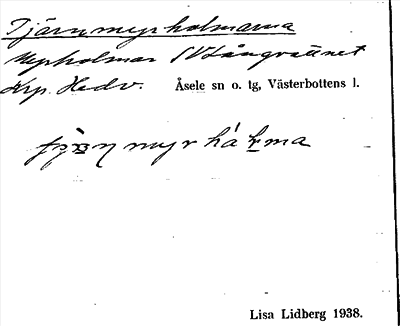 Tjärnmyrholmarna
Myrholmar SV Långvattnet
Krp. Hedv. Åsele sn o. tg, Västerbottens l.
myr
Lisa Lidberg 1938.